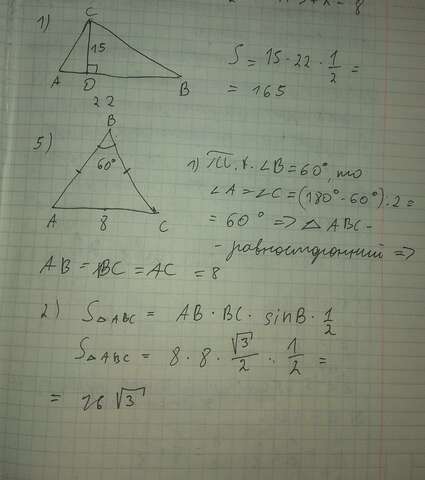 1)
C
15
A D B
22
S = 15 · 22 · 1/2 =
= 165
5)
B
60°
A 8 C
1) Т.к. ∠B = 60°, то
∠A = ∠C = (180° - 60°) : 2 =
= 60° => △ABC -
- равносторонний =>
AB = BC = AC = 8
2) S△ABC = AB · BC · sinB · 1/2
S△ABC = 8 · 8 · √3/2 · 1/2 =
= 16 √3